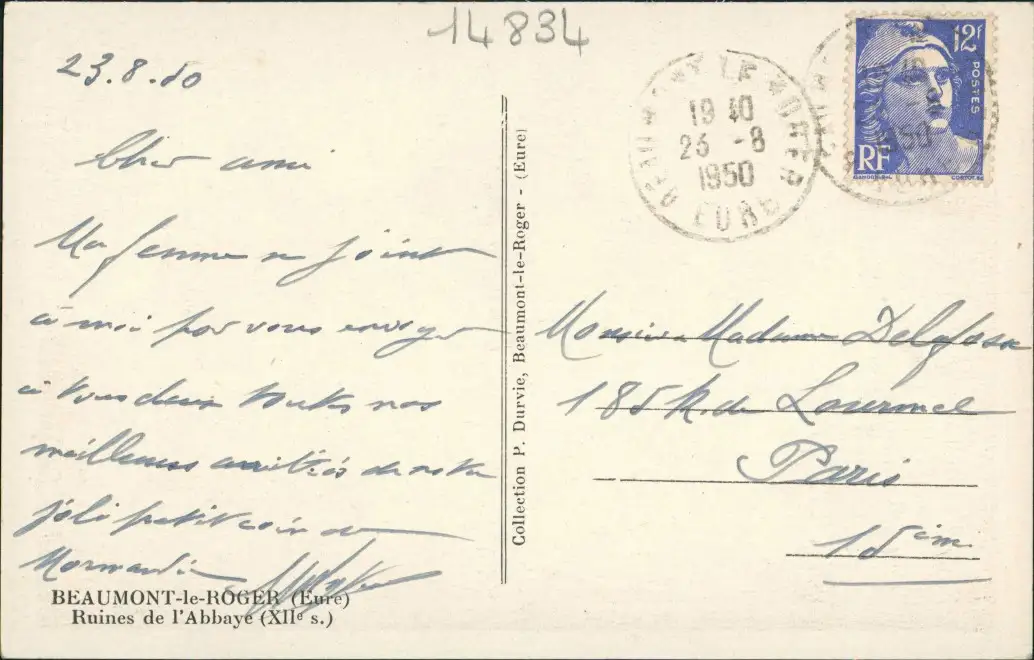 14834
23.8.50
Cher ami
Ma femme se joint
à moi pour vous envoyer
à tous deux toutes nos
meilleures amitiés de notre
joli petit coin de
Normandie
BEAUMONT-le-ROGER (Eure)
Ruines de l'Abbaye (XIIe s.)
Collection P. Durvie, Beaumont-le-Roger - (Eure)
BEAUMONT LE ROGER
19 40
23 -8
1950
EURE
12f
POSTES
RF
GANDON-DEL.
CORTOT-SC
Monsieur Madame Delafosse
185 R. de Lourmel
Paris
15ème